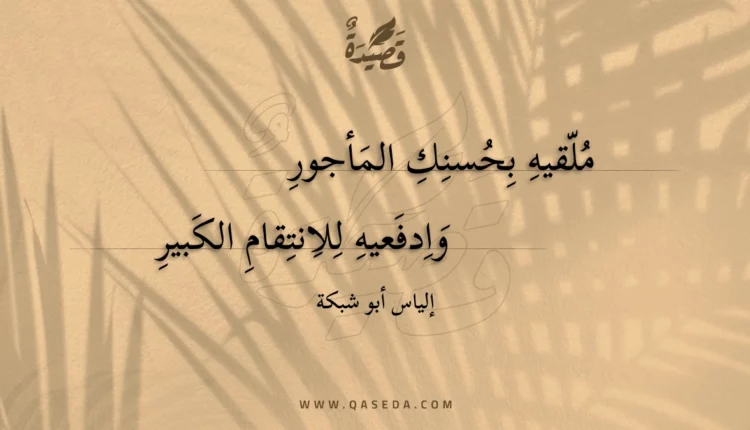 قَصِيْدَةٌ
مُلّقيهِ بِحُسنِكِ المَأجورِ
وَاِدفَعيهِ لِلاِنتِقامِ الكَبيرِ
إلياس أبو شبكة
WWW.QASEDA.COM